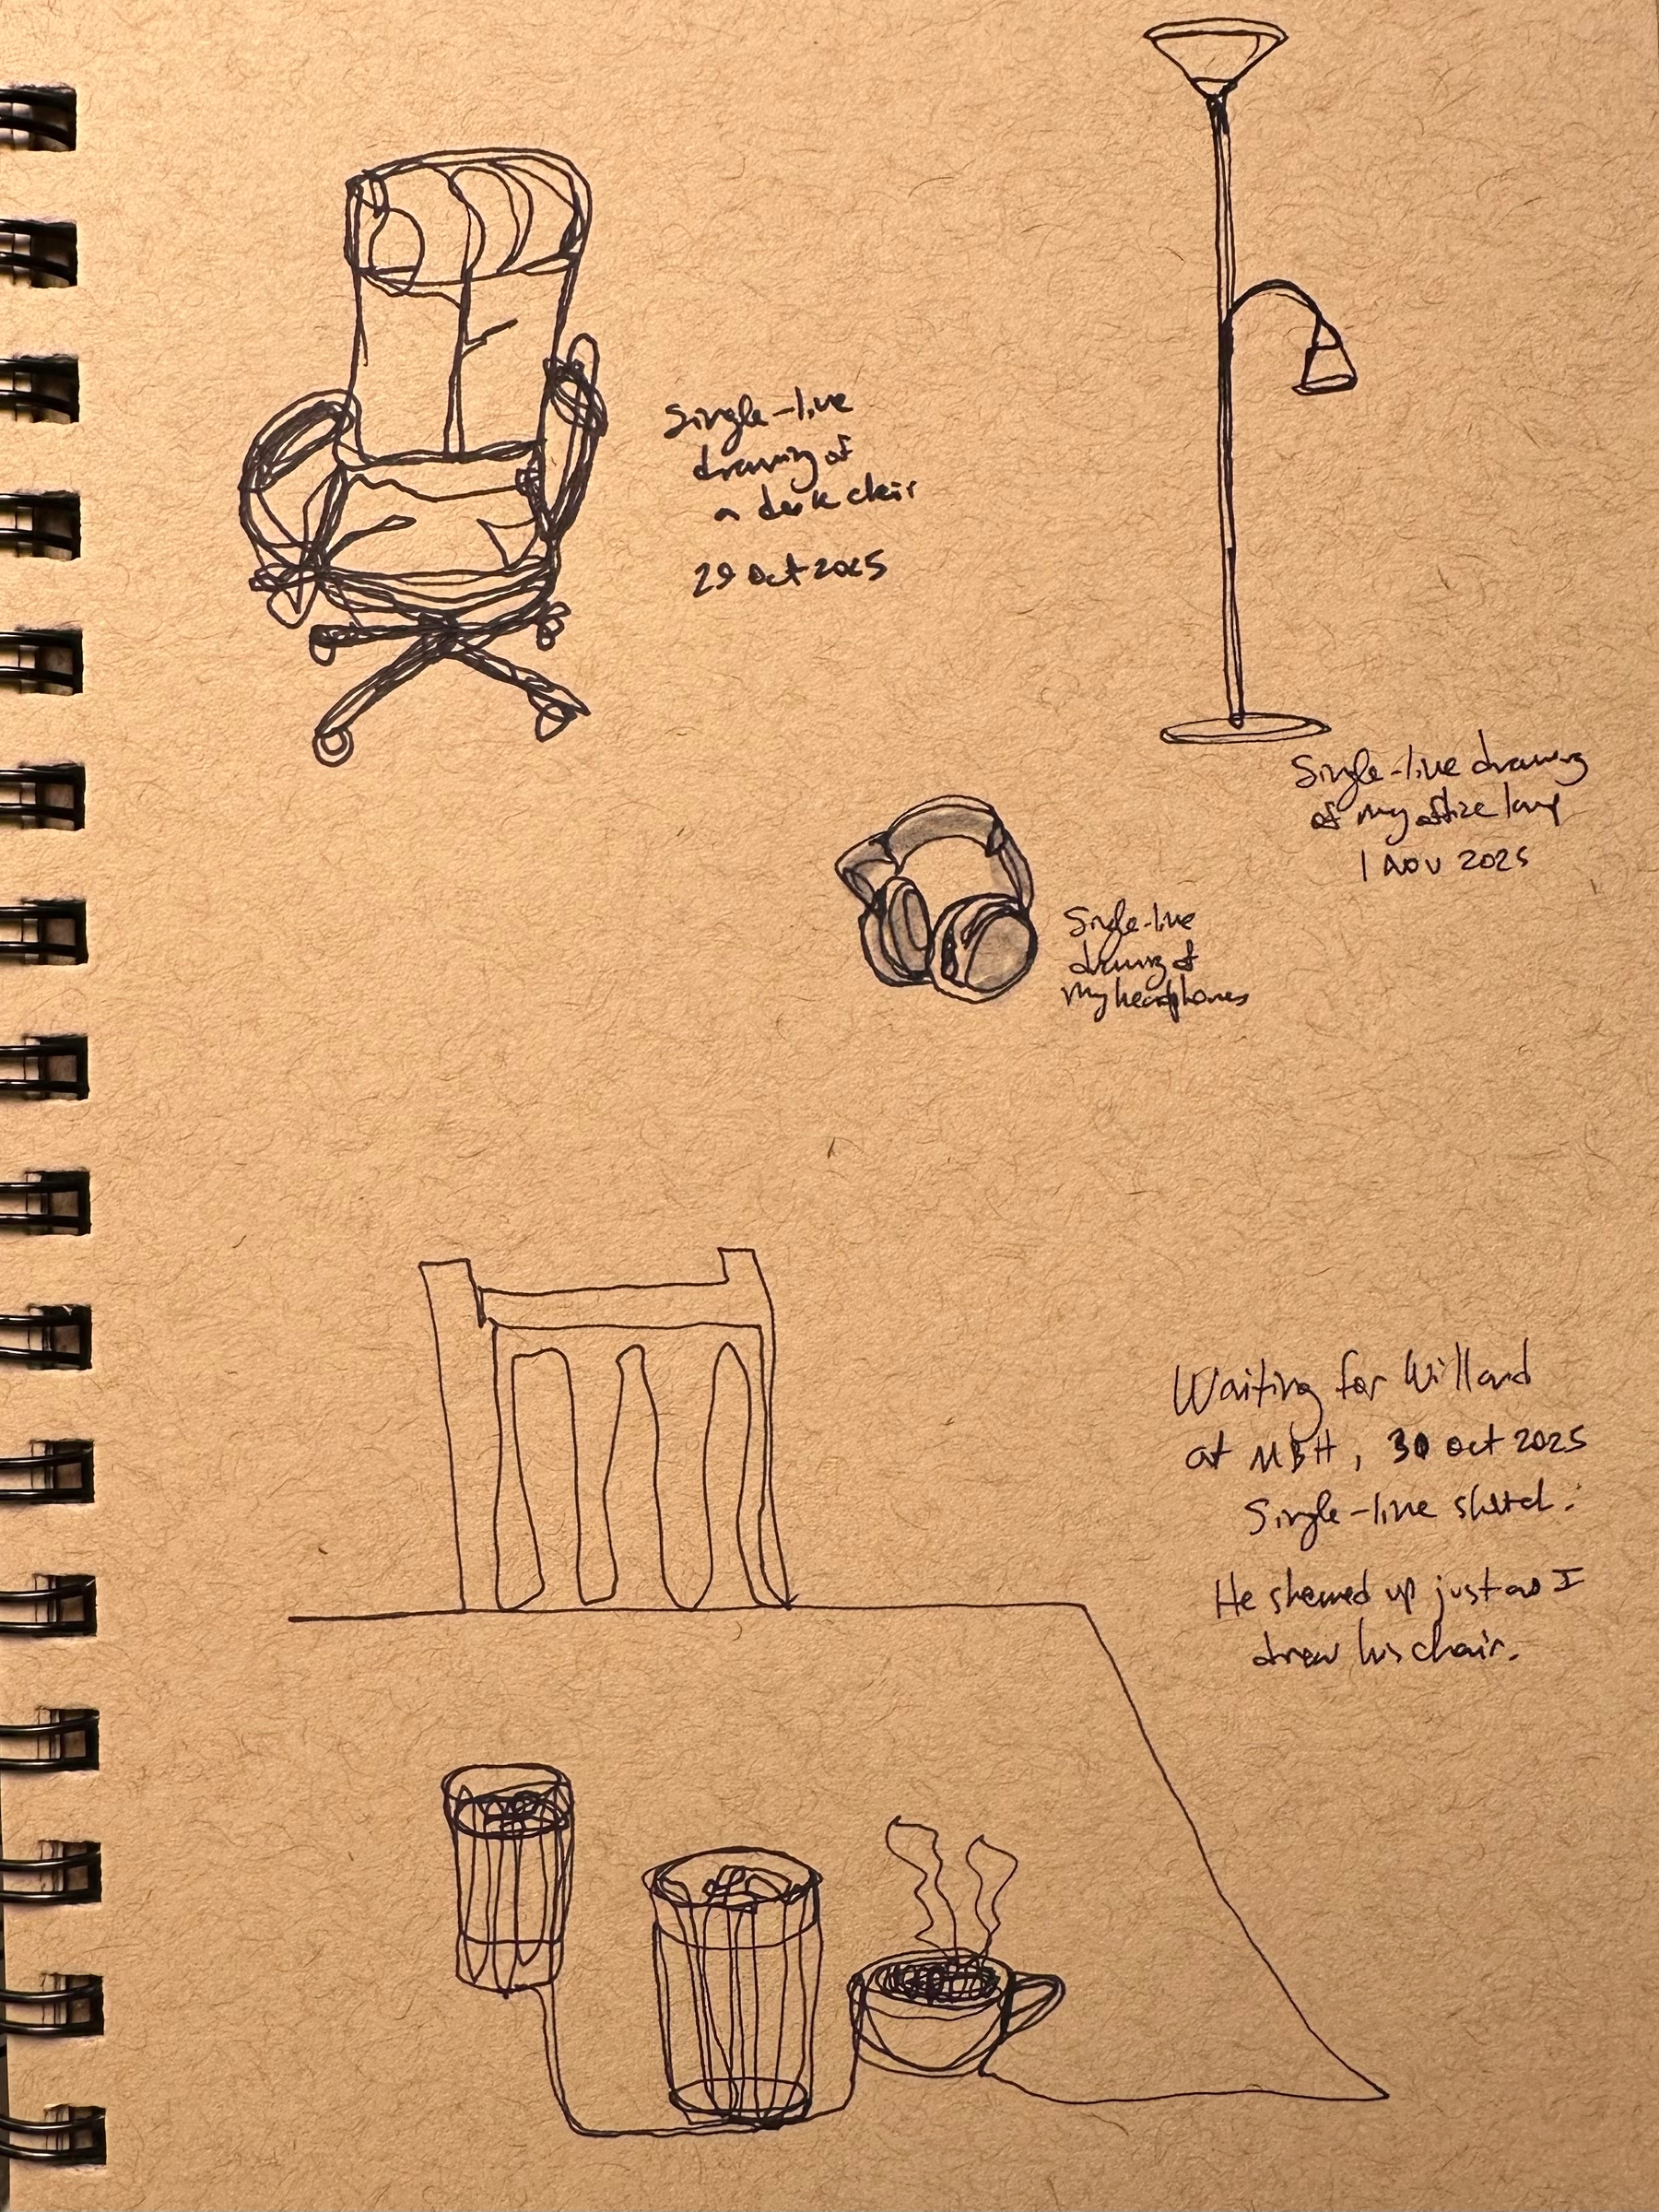 Single-line
drawing of
a desk chair
29 Oct 2025
Single-line drawing
of my office lamp
1 Nov 2025
Single-line
drawing of
my headphones
Waiting for Willard
at MBH, 30 Oct 2025
Single-line sketch.
He showed up just as I
drew his chair.